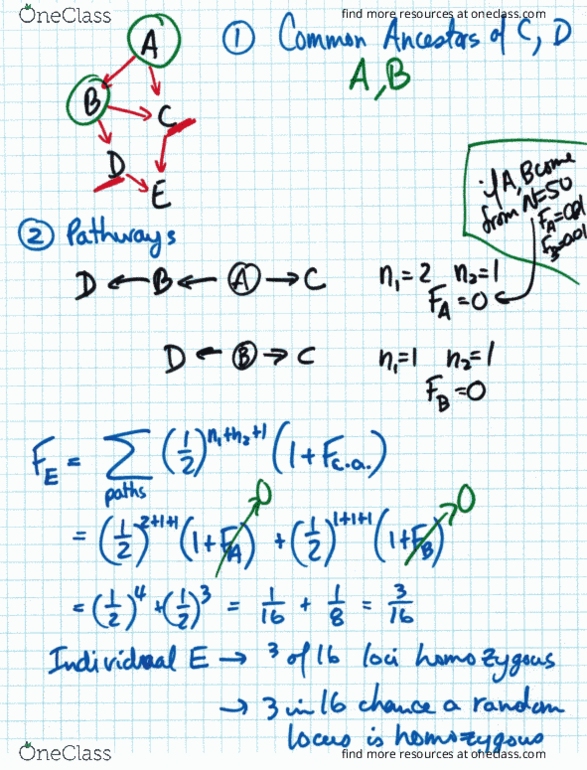 OneClass
find more resources at oneclass.com
A
B
C
D
E
① Common Ancestors of C, D
A, B
if A, B come
from N=50
F_A=0.01
F_B=0.01
② Pathways
D ← B ← Ⓐ → C n₁=2 n₂=1
F_A=0
D ← Ⓑ → C n₁=1 n₂=1
F_B=0
F_E = Σ (1/2)^(n₁+n₂+1) (1+F_c.a.)
paths
= (1/2)^(2+1+1) (1+F_A) → 0 + (1/2)^(1+1+1) (1+F_B) → 0
= (1/2)^4 + (1/2)^3 = 1/16 + 1/8 = 3/16
Individual E → 3 of 16 loci homozygous
→ 3 in 16 chance a random
locus is homozygous
OneClass
find more resources at oneclass.com